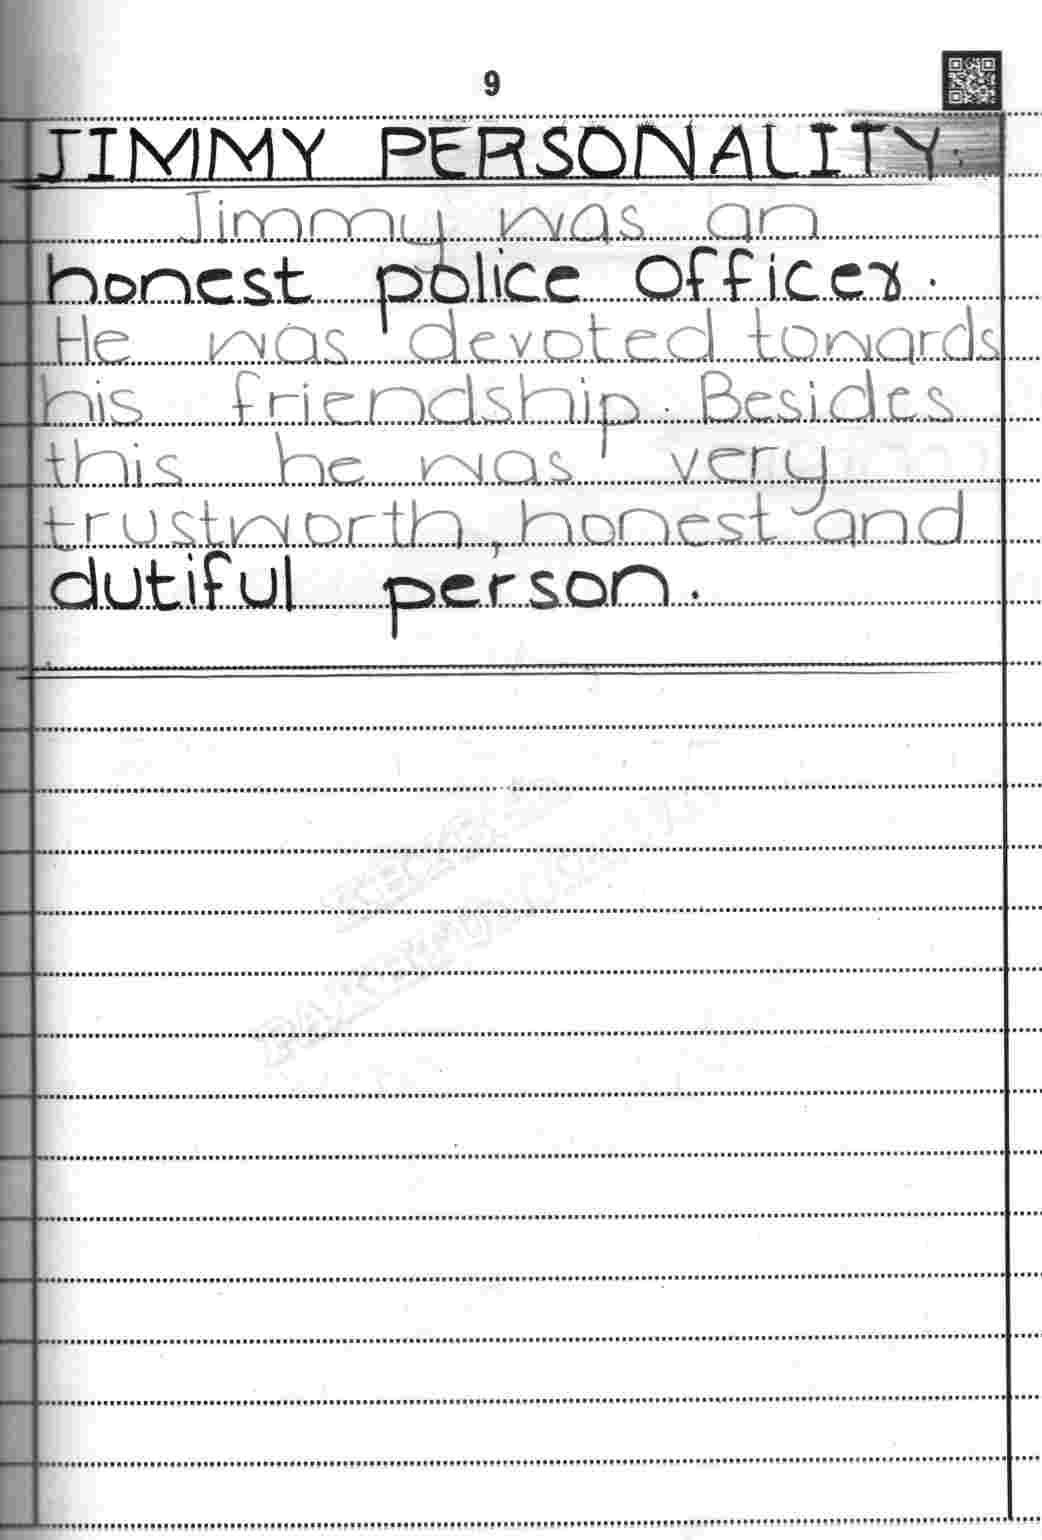 9
JIMMY PERSONALITY:
Jimmy was an
honest police officer.
He was devoted towards
his friendship. Besides
this he was very
trustworth, honest and
dutiful person.